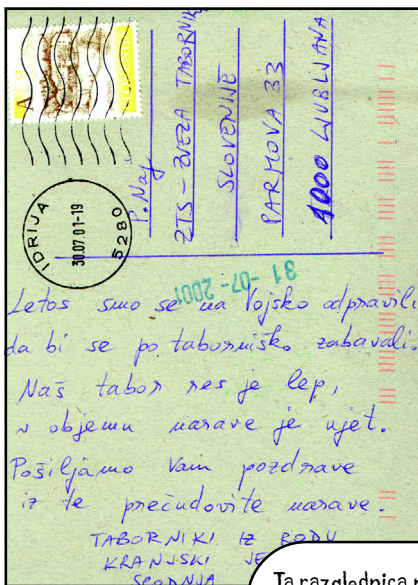 P. Naj
ZTS - ZVEZA TABORNIKOV
SLOVENIJE
PARMOVA 33
1000 LJUBLJANA
IDRIJA
30.07.01-19
5280
31-07-2001
Letos smo se na Vojsko odpravili
da bi se po taborniško zabavali.
Naš tabor res je lep,
v objemu narave je ujet.
Pošiljamo Vam pozdrave
iz te prečudovite narave.
TABORNIKI IZ RODU
KRANJSKI
SPODNJA
Ta razglednica